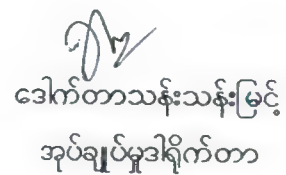 ဒေါက်တာသန်းသန်းမြင့်
အုပ်ချုပ်မှုဒါရိုက်တာ